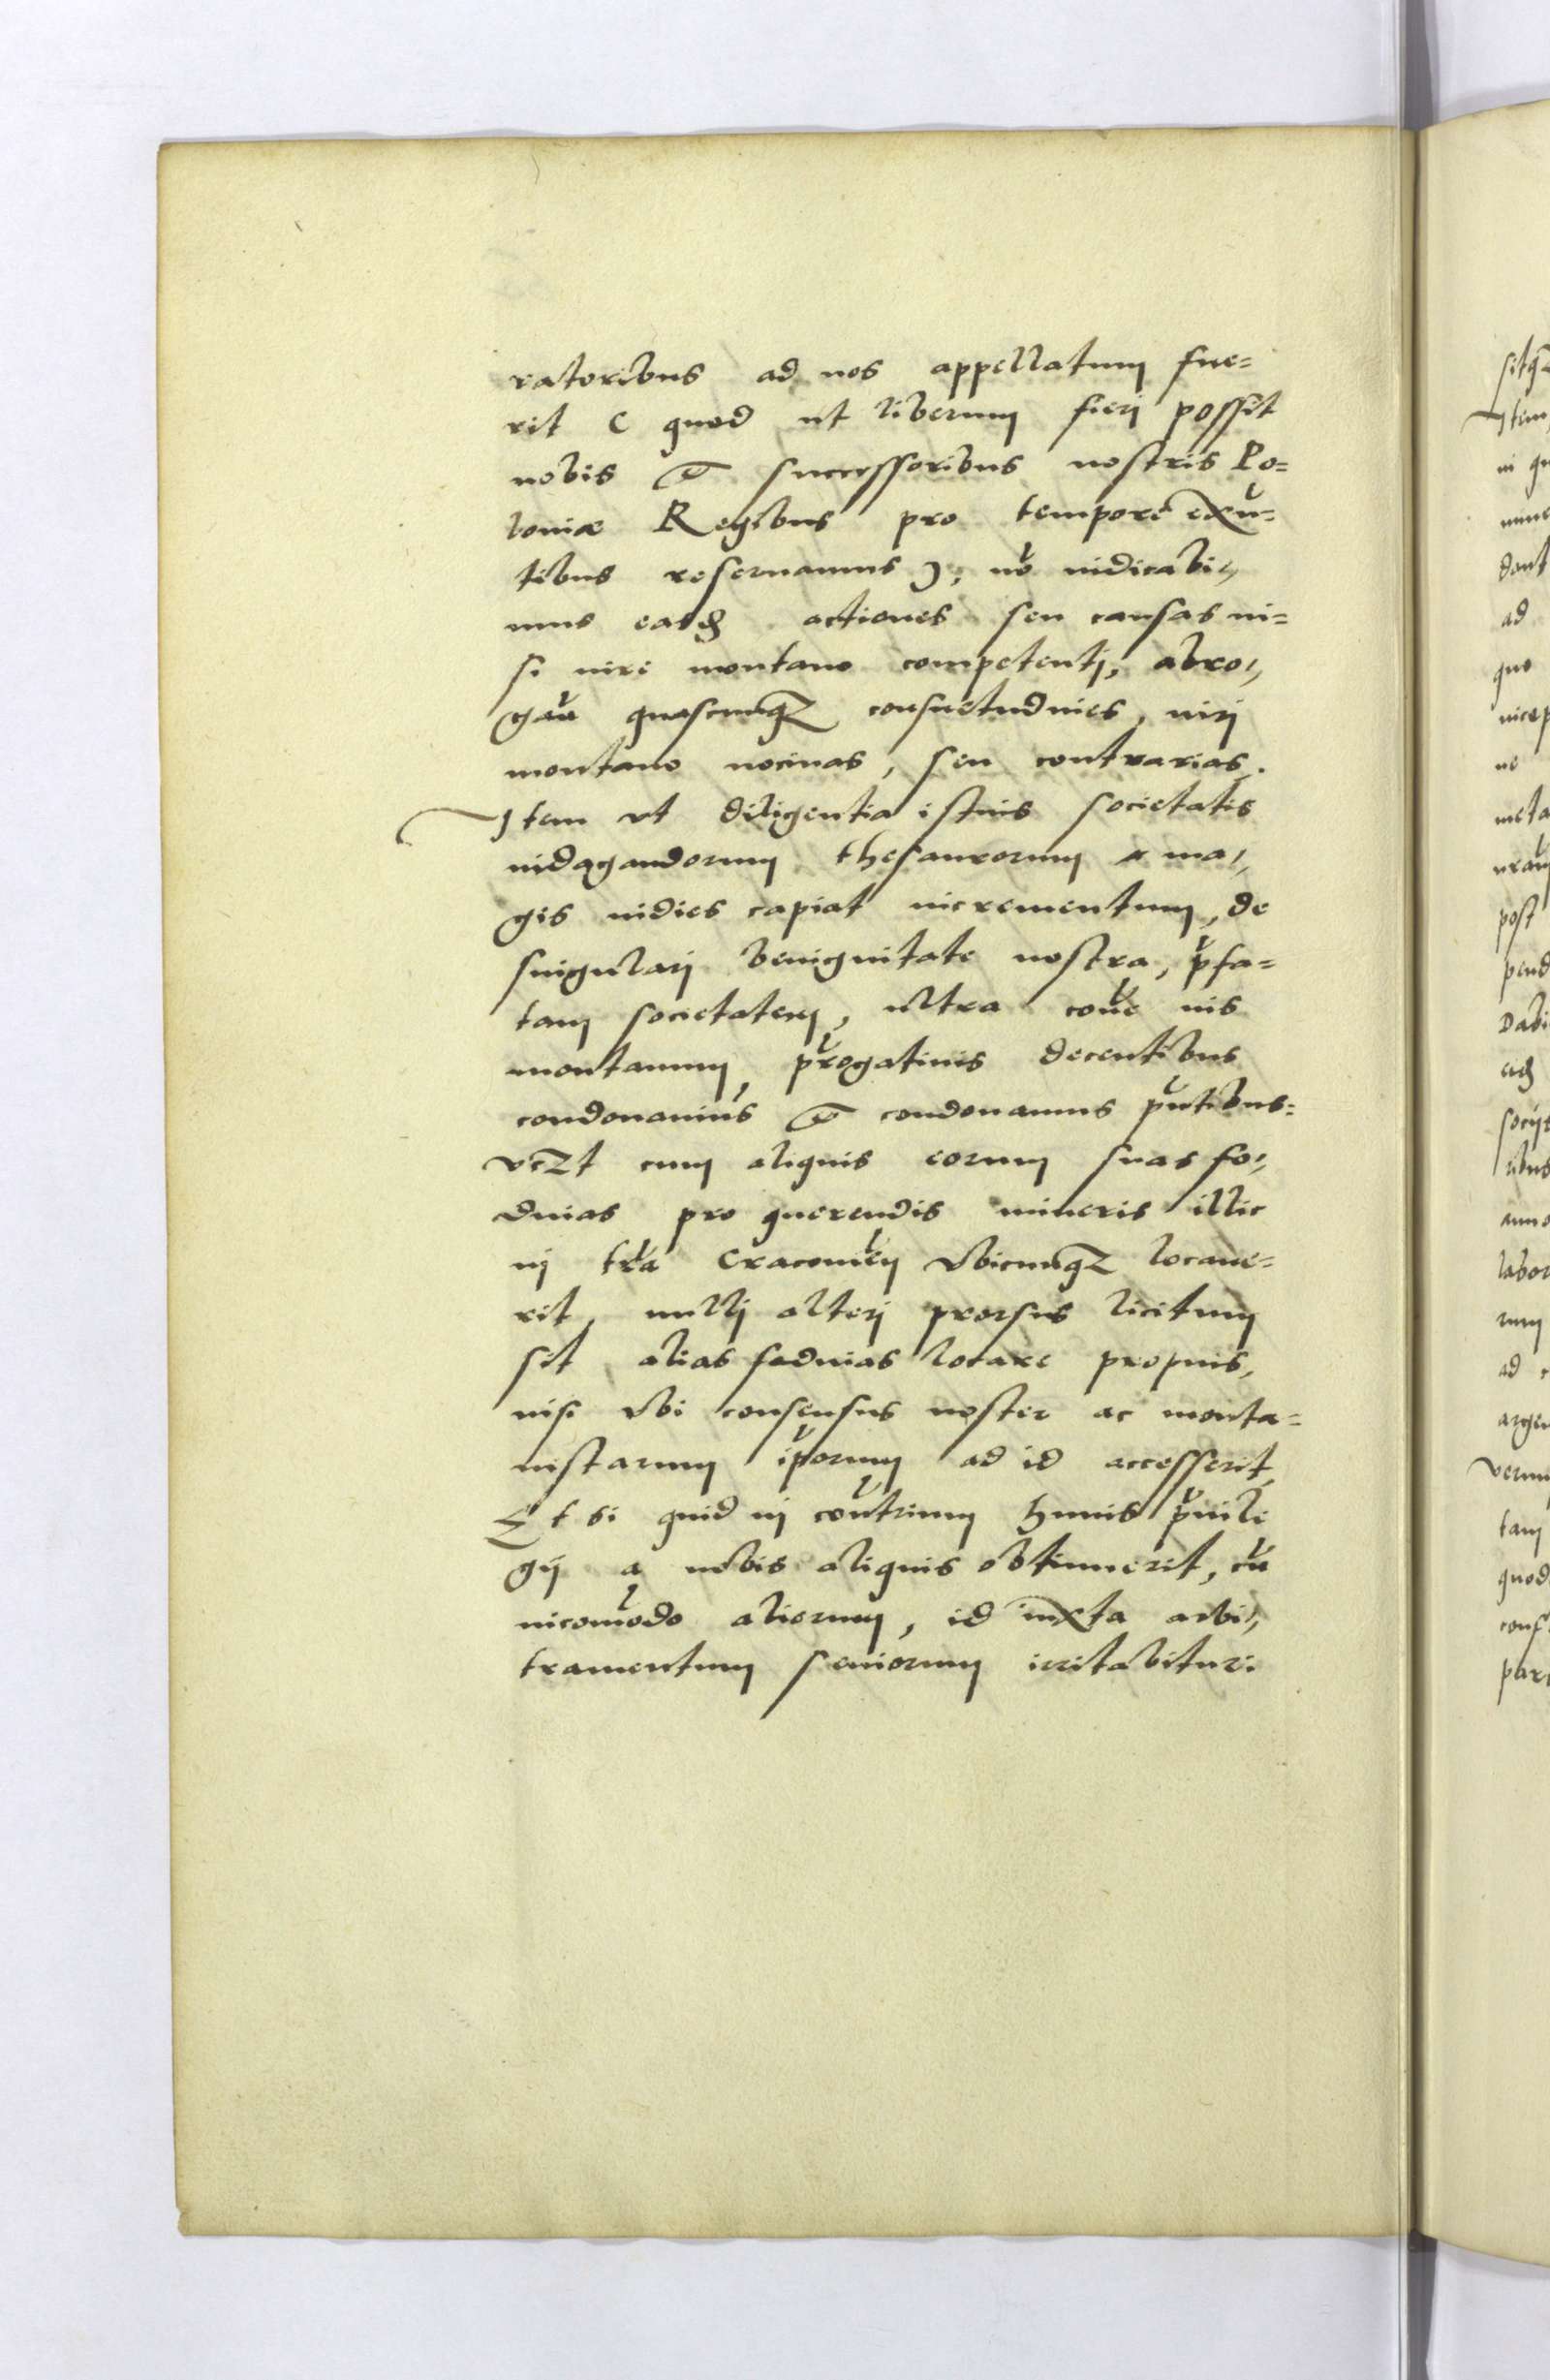 ratoribus ad nos appellatum fue=
rit ( quod ut liberum fieri possit
nobis et successoribus nostris Po=
loniæ Regibus pro tempore exñ=
tibus reseruamus ), nõ iudicabi-
mus easdẽ actiones seu causas ni=
si iure montano competenti, abro-
gãa quascunqz consuetudines, iuri
montano nociuas, seu contrarias.
Item ut diligentia istius societatis
indagandorum thesaurorum ma-
gis indies capiat incrementum, de
singulari benignitate nostra, p̃fa=
tam societatem, ultra cõue ius
montanum, p̃rogatiuis decentibus
condonauimus et condonamus p̃ntibus=
vczt cum aliquis eorum suas fo-
dinas pro querendis mineris illic
in t̃ra Cracouieñ vbicunqz locaue=
rit, nulli alteri prorsus licitum
sit alias fodinas locare propius,
nisi vbi consensus noster ac monta=
nistarum ip̃orum ad id accesserit,
Et si quid in cont̃rium huius p̃uile
gij a nobis aliquis obtinuerit, cũ
incom̃odo aliorum, id iuxta arbi-
tramentum seniorum irritabitur.
sitqz
Item
in qu
dent
ad
quo
ne
meta
post
pend
Dabi
socijs
labor
ad
argen
verum
tam
quod
conf